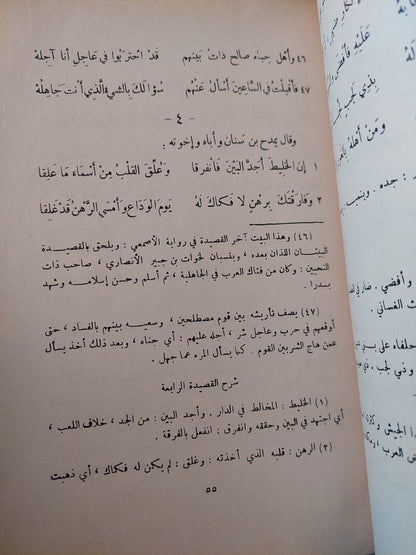 ٤٦ وأهل خباء صالح ذات بينهم قد احتربوا في عاجل أنا آجله
٤٧ فأقبلت في الساعين أسأل عنهم سؤالك بالشيء الذي أنت جاهله
— ٤ —
وقال يمدح بن سنان وأباه وإخوته :
١ إن الخليط أجد البين فانفرقا وعلق القلب من أسماء ما علقا
٢ وفارقتك برهن لا فكاك له يوم الوداع وأمسى الرهن قد غلقا
(٤٦) وهذا البيت آخر القصيدة في رواية الأصمعي : ويلحق بالقصيدة
البيتان اللذان بعده ، وينسبان لخوات بن جبير الأنصاري ، صاحب ذات
النحيين : وكان من فتاك العرب في الجاهلية ، ثم أسلم وحسن إسلامه وشهد
بدرا .
(٤٧) يصف تأريشه بين قوم مصطلحين ، وسعيه بينهم بالفساد ، حتى
أوقعهم في حرب وعاجل شر ، أجله عليهم : أي جناه ، وبعد ذلك أخذ يسأل
عمن هاج الشر بين القوم . كما يسأل المرء عما جهل .
شرح القصيدة الرابعة
(١) الخليط : المخالط في الدار . وأجد البين : من الجد ، خلاف اللعب ،
أي اجتهد في البين وحققه وانفرق : انفعل بالفرقة .
(٢) الرهن : قلبه الذي أخذته : وغلق : لم يكن له فكاك ، أي ذهبت
٥٥
عليه فأفضى
له
بذي لجب
ومن أهله
: جده . وينصب
وأفضي . صار في
الغساني .
حلفاء على بني
وذي لجب :
هذا الجيش